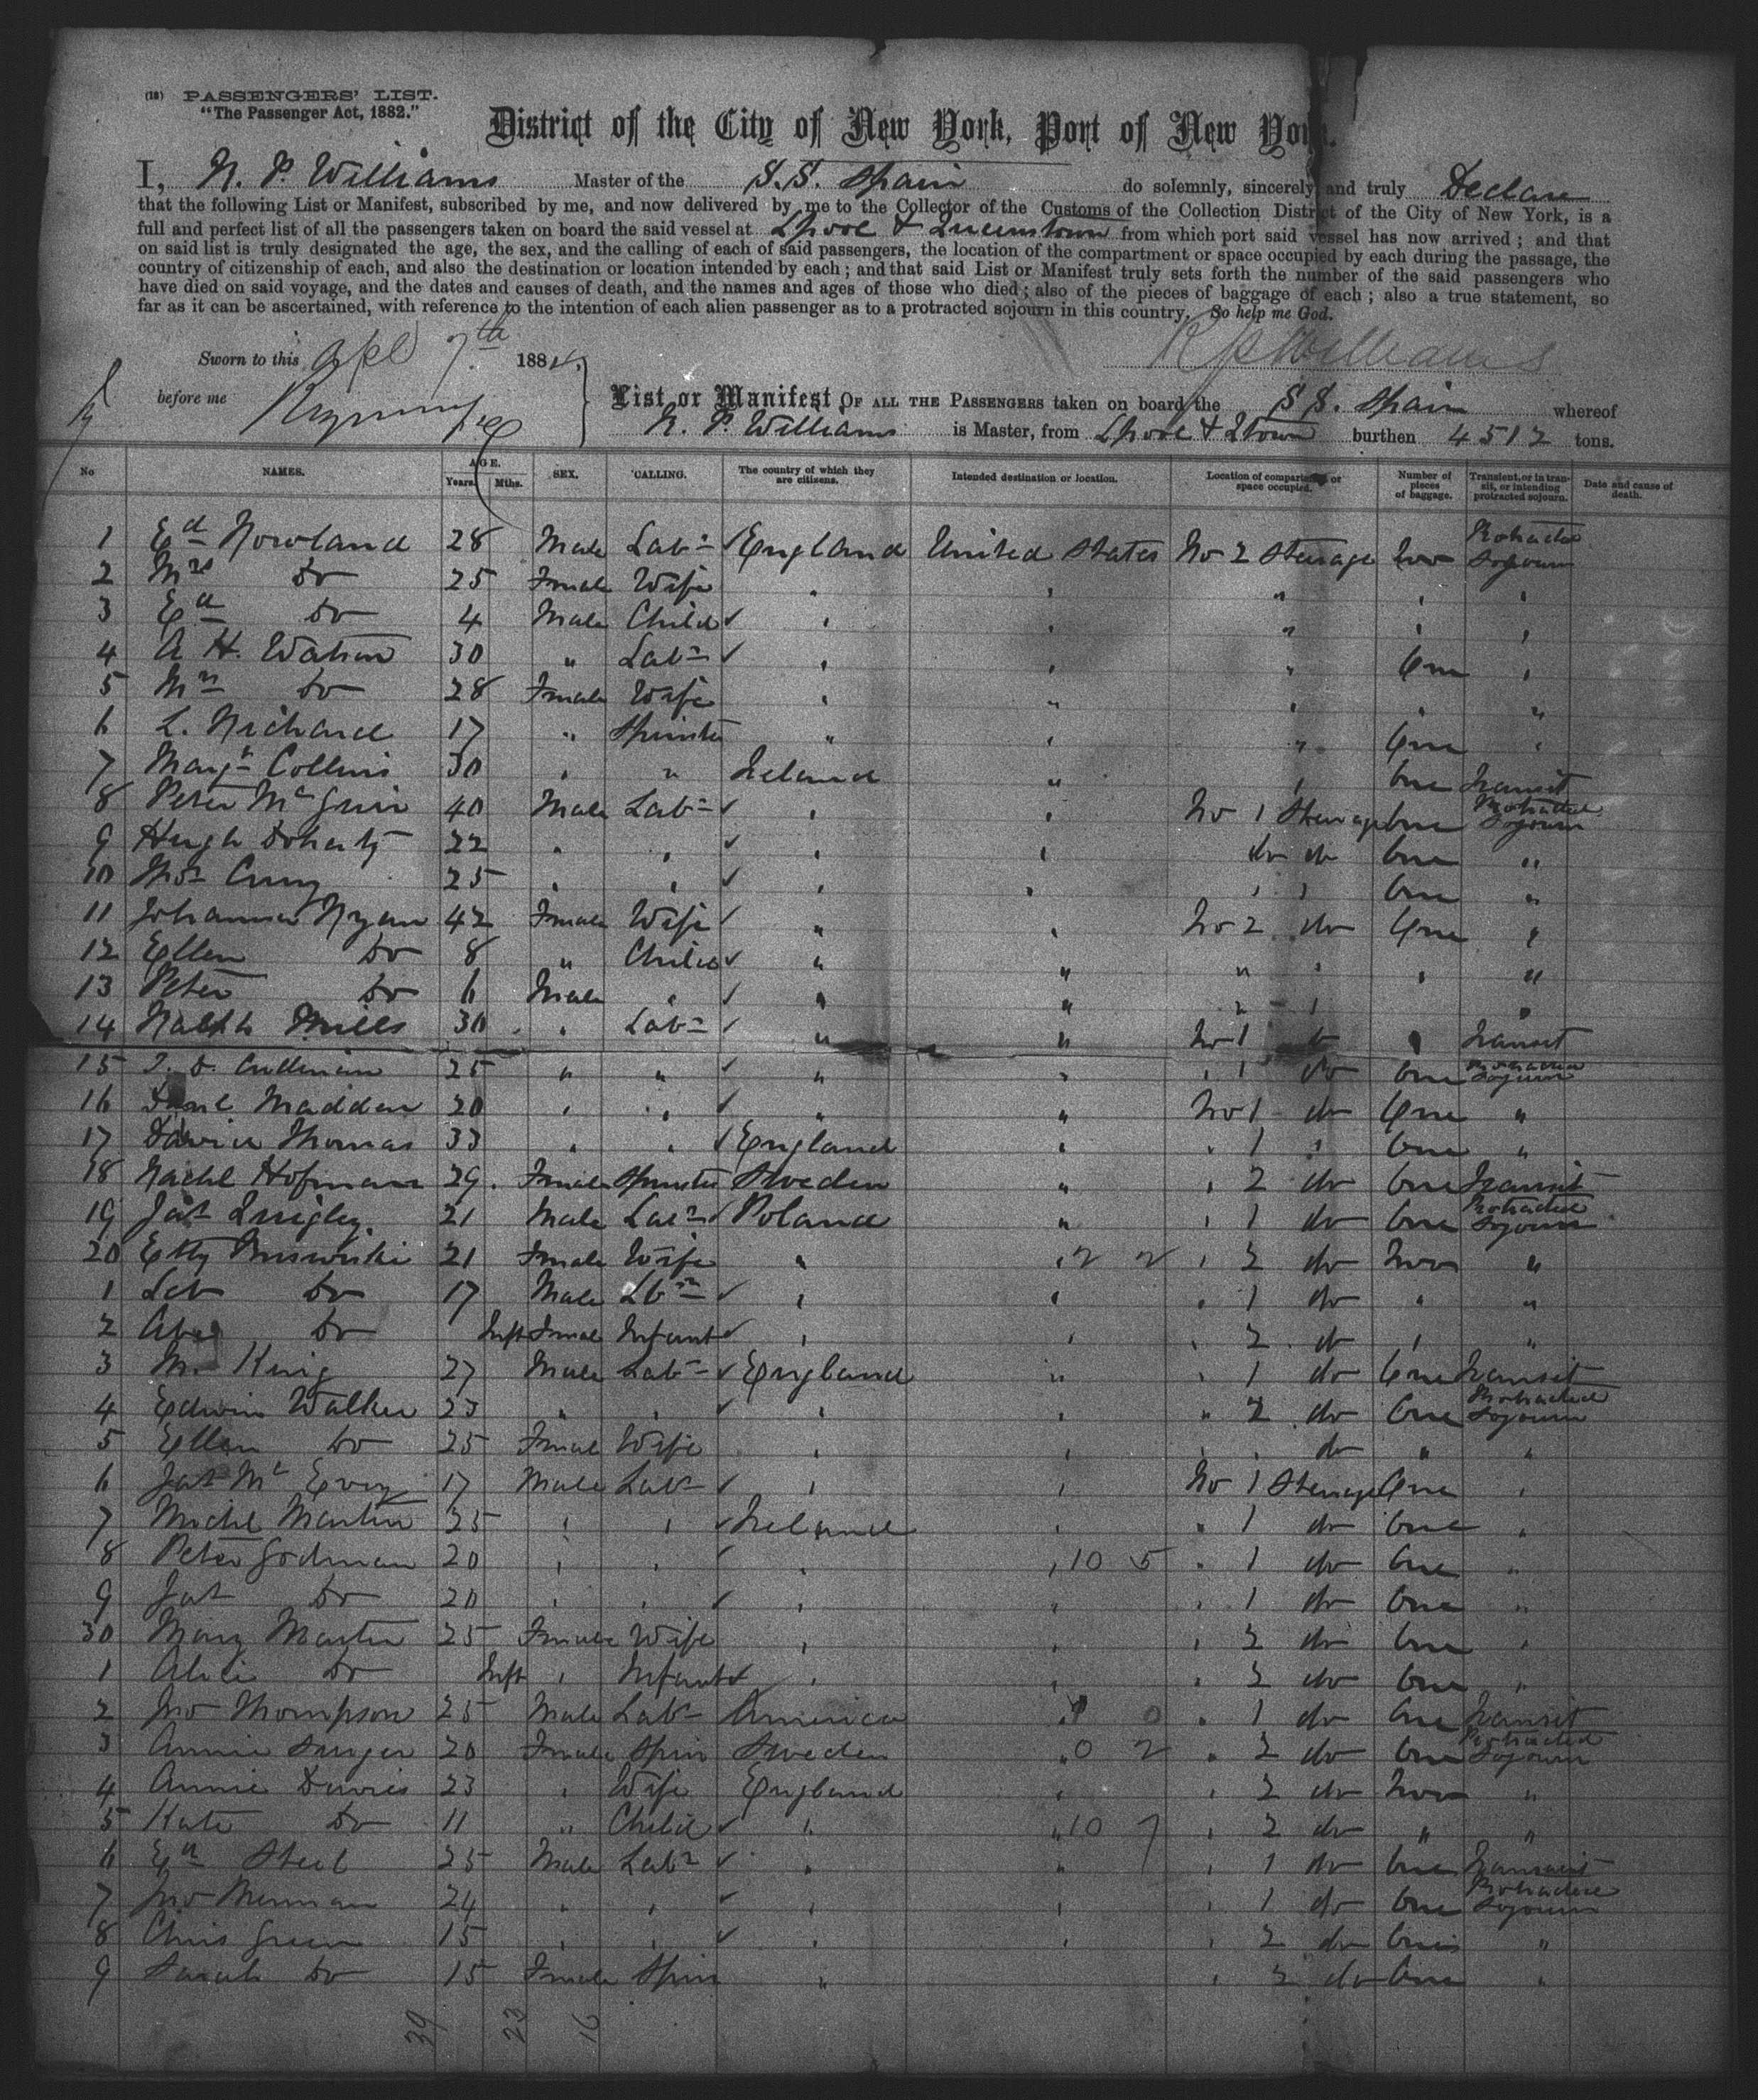 (18) PASSENGERS' LIST.
"The Passenger Act, 1882."
District of the City of New York, Port of New York.
I, R. P. Williams Master of the S.S. Spain do solemnly, sincerely and truly Declare
that the following List or Manifest, subscribed by me, and now delivered by me to the Collector of the Customs of the Collection District of the City of New York, is a
full and perfect list of all the passengers taken on board the said vessel at L'pool & Queenstown from which port said vessel has now arrived; and that
on said list is truly designated the age, the sex, and the calling of each of said passengers, the location of the compartment or space occupied by each during the passage, the
country of citizenship of each, and also the destination or location intended by each; and that said List or Manifest truly sets forth the number of the said passengers who
have died on said voyage, and the dates and causes of death, and the names and ages of those who died; also of the pieces of baggage of each; also a true statement, so
far as it can be ascertained, with reference to the intention of each alien passenger as to a protracted sojourn in this country. So help me God.
Sworn to this Apl 7th 188 R P Williams
before me
List or Manifest OF ALL THE PASSENGERS taken on board the S.S. Spain whereof
R. P. Williams is Master, from L'pool & Qtown burthen 4512 tons.
No NAMES. AGE. Years. Mths. SEX. CALLING. The country of which they are citizens. Intended destination or location. Location of compartment or space occupied. Number of pieces of baggage. Transient, or in transit, or intending protracted sojourn. Date and cause of death.
1 Ed Rowland 28 Male Labr England United States No 2 Steerage Two Protracted Sojourn
2 Mrs Do 25 Female Wife " " " " "
3 Ed Do 4 Male Child " " " " "
4 A H. Watson 30 " Labr " " " One "
5 Mrs Do 28 Female Wife " " " " "
6 L. Richard 17 " Spinster " " " One "
7 Margt Collins 30 " " Ireland " " One Transit
8 Peter McGuir 40 Male Labr " " No 1 Steerage One Protracted Sojourn
9 Hugh Doherty 22 " " " " do do One "
10 Thos 25 " " " " " " One "
11 Johanna Ryan 42 Female Wife " " No 2 do One "
12 Ellen Do 8 " Child " " " " " "
13 Peter Do 6 Male " " " 2 " "
14 Ralph Mills 30 " Labr " " No 1 " Transit
15 Cullinan 25 " " " " " 1 do One Protracted Sojourn
16 Madden 20 " " " " No 1 do One "
17 David Thomas 33 " " England " " 1 " One "
18 Rachl Hofmann 29 Female Spinster Sweden " " 2 do One Transit
19 Jas Quigley 21 Male Labr Poland " " 1 do One Protracted Sojourn
20 Etty 21 Female Wife " " 2 2 " 2 do Two "
1 Do 17 Male Labr " " " 1 do " "
2 Do Inft Female Infant " " " 2 do " "
3 King 27 Male Labr England " " 1 do One Transit
4 Edwin Walker 23 " " " " " 2 do One Protracted Sojourn
5 Ellen Do 25 Female Wife " " " " do " "
6 Jas Mc 17 Male Labr " " No 1 Steerage One "
7 Michl Martin 25 " " Ireland " " 1 do One "
8 Peter Godman 20 " " " " 10 5 " 1 do One "
9 Jas Do 20 " " " " " 1 do One "
30 Mary Martin 25 Female Wife " " " 2 do One "
1 Alice Do Inft " Infant " " " 2 do One "
2 Jno Thompson 25 Male Labr America " 0 " 1 do One Transit
3 Annie 20 Female Spin Sweden " 0 2 " 2 do One Protracted Sojourn
4 Annie Davies 23 " Wife England " " 2 do Two "
5 Kate Do 11 " Child " " 10 7 " 2 do " "
6 Ed Steel 25 Male Labr " " " 1 do One Transit
7 Jno 24 " " " " " 1 do One Protracted Sojourn
8 Chris Green 15 " " " " " 2 do One "
9 Sarah Do 15 Female Spin " " 2 do One "
39 23 16